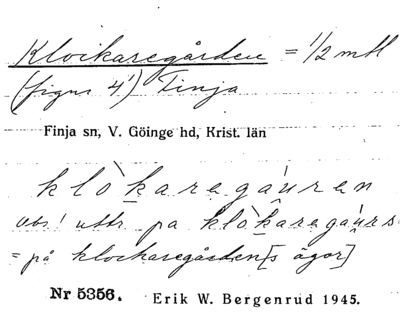 Klockaregården = 1/2 mtl
(figur 4') Finja
Finja sn, V. Göinge hd, Krist. län
klò̀karegáu̯ren
obs! uttr på klò̀karegáu̯rs
= på klockaregården[s ägor]
Nr 5356. Erik W. Bergenrud 1945.